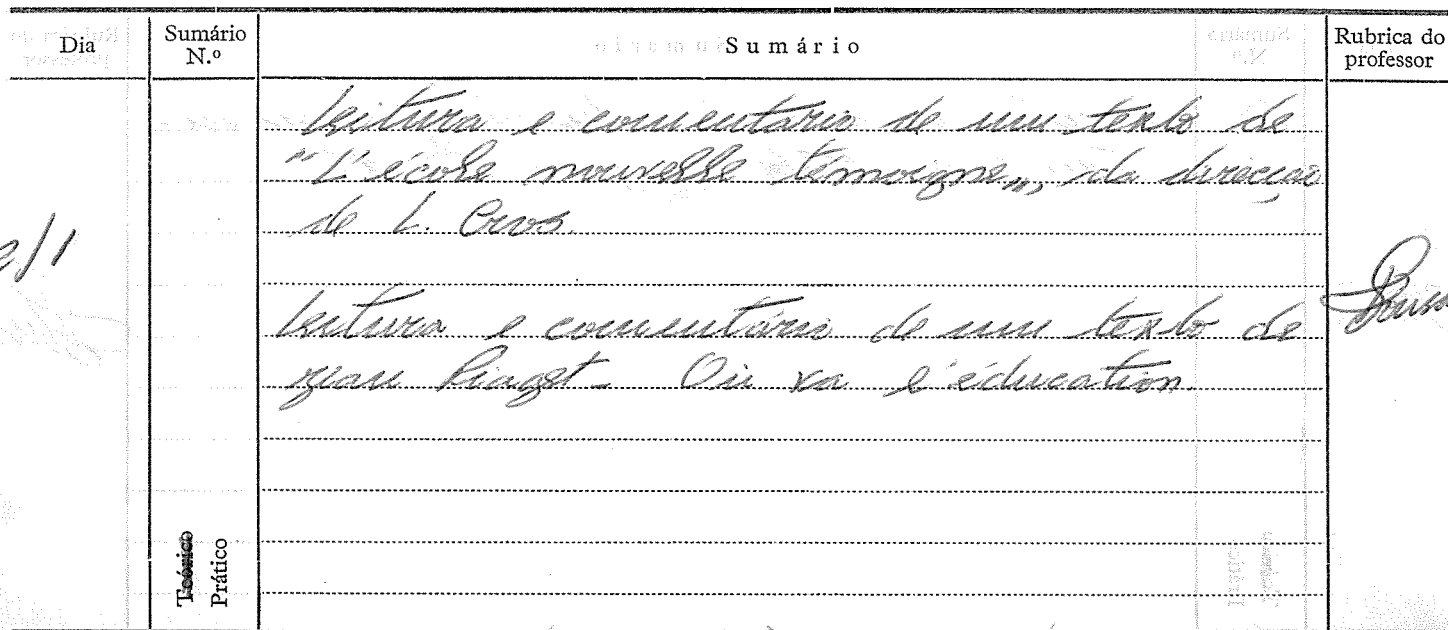 Dia
Sumário N.º
Sumário
Rubrica do professor
Leitura e comentário de um texto de
"L'école nouvelle témoigne", da direcção
de L. Cros.
2/1
Leitura e comentário de um texto de
Jean Piaget - Où va l'éducation.
Teórico
Prático